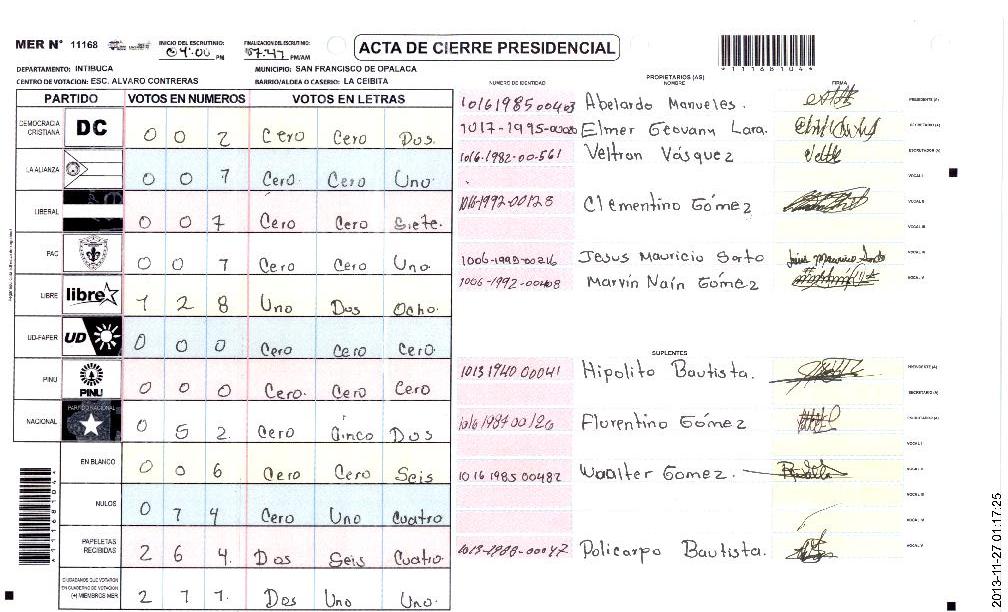 MER N° 11168
INICIO DEL ESCRUTINIO: 04:00 PM
FINALIZACION DEL ESCRUTINIO: 07:47 PM/AM
ACTA DE CIERRE PRESIDENCIAL
111681041
DEPARTAMENTO: INTIBUCA
MUNICIPIO: SAN FRANCISCO DE OPALACA
CENTRO DE VOTACION: ESC. ALVARO CONTRERAS
BARRIO/ALDEA O CASERIO: LA CEIBITA
PARTIDO VOTOS EN NUMEROS VOTOS EN LETRAS
DEMOCRACIA CRISTIANA DC 0 0 2 Cero Cero Dos.
LA ALIANZA 0 0 1 Cero. Cero Uno.
LIBERAL 0 0 7 Cero Cero Siete.
PAC 0 0 1 Cero Cero Uno.
LIBRE libre 1 2 8 Uno Dos Ocho.
UD-FAPER UD 0 0 0 Cero Cero Cero.
PINU PINU 0 0 0 Cero. Cero Cero
NACIONAL PARTIDO NACIONAL 0 5 2. Cero Cinco Dos
EN BLANCO 0 0 6 Cero Cero Seis
NULOS 0 1 4 Cero Uno Cuatro
PAPELETAS RECIBIDAS 2 6 4. Dos Seis Cuatro.
CIUDADANOS QUE VOTARON EN CUADERNO DE VOTACION (+) MIEMBROS MER 2 1 1. Dos Uno Uno.
NUMERO DE IDENTIDAD PROPIETARIOS (AS) NOMBRE FIRMA
1016198500403 Abelardo Manueles. PRESIDENTE (A)
1017-1995-00020 Elmer Geovany Lara. SECRETARIO (A)
1016-1982-00-561 Veltron Vásquez ESCRUTADOR (A)
VOCAL I
1016-1992-00128 Clementino Gómez VOCAL II
VOCAL III
1006-1995-00216 Jesus Mauricio Sorto Jesus Mauricio Sorto VOCAL IV
1006-1992-00408 Marvin Naín Gómez VOCAL V
SUPLENTES
1013 1940 00041 Hipolito Bautista. PRESIDENTE (A)
SECRETARIO (A)
1016 1987 00126 Florentino Gómez ESCRUTADOR (A)
VOCAL I
1016 1985 00482 Waalter Gomez. VOCAL II
VOCAL III
VOCAL IV
1013-1988-00047 Policarpo Bautista. VOCAL V
111681041
2013-11-27 01:17:25